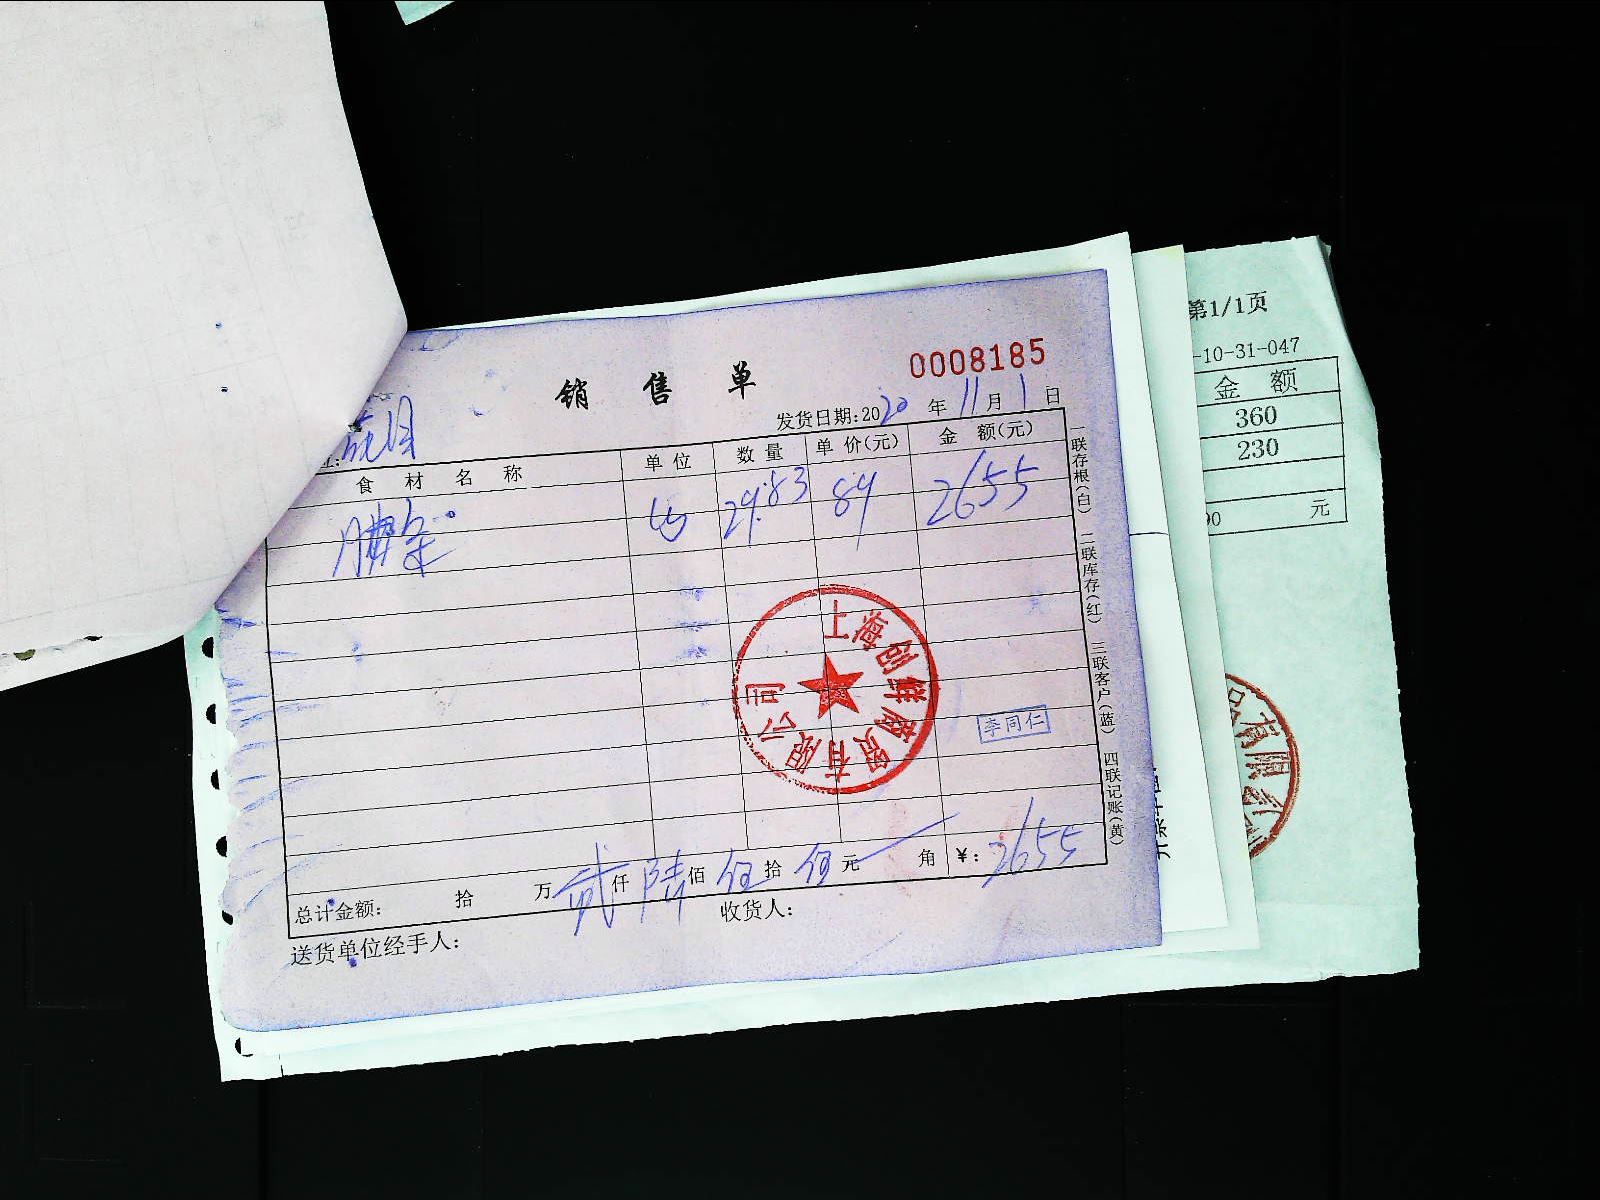 销售单
0008185
发货日期:2020年11月1日
食材名称 单位 数量 单价(元) 金额(元)
29.83 89 2655
一联存根(白) 二联库存(红) 三联客户(蓝) 四联记账(黄)
上海创鲜商贸有限公司
李同仁
总计金额: 拾 万贰仟陆佰伍拾伍元 角 ¥:2655
送货单位经手人: 收货人:
第1/1页
-10-31-047
金额
360
230
00 元
有限公